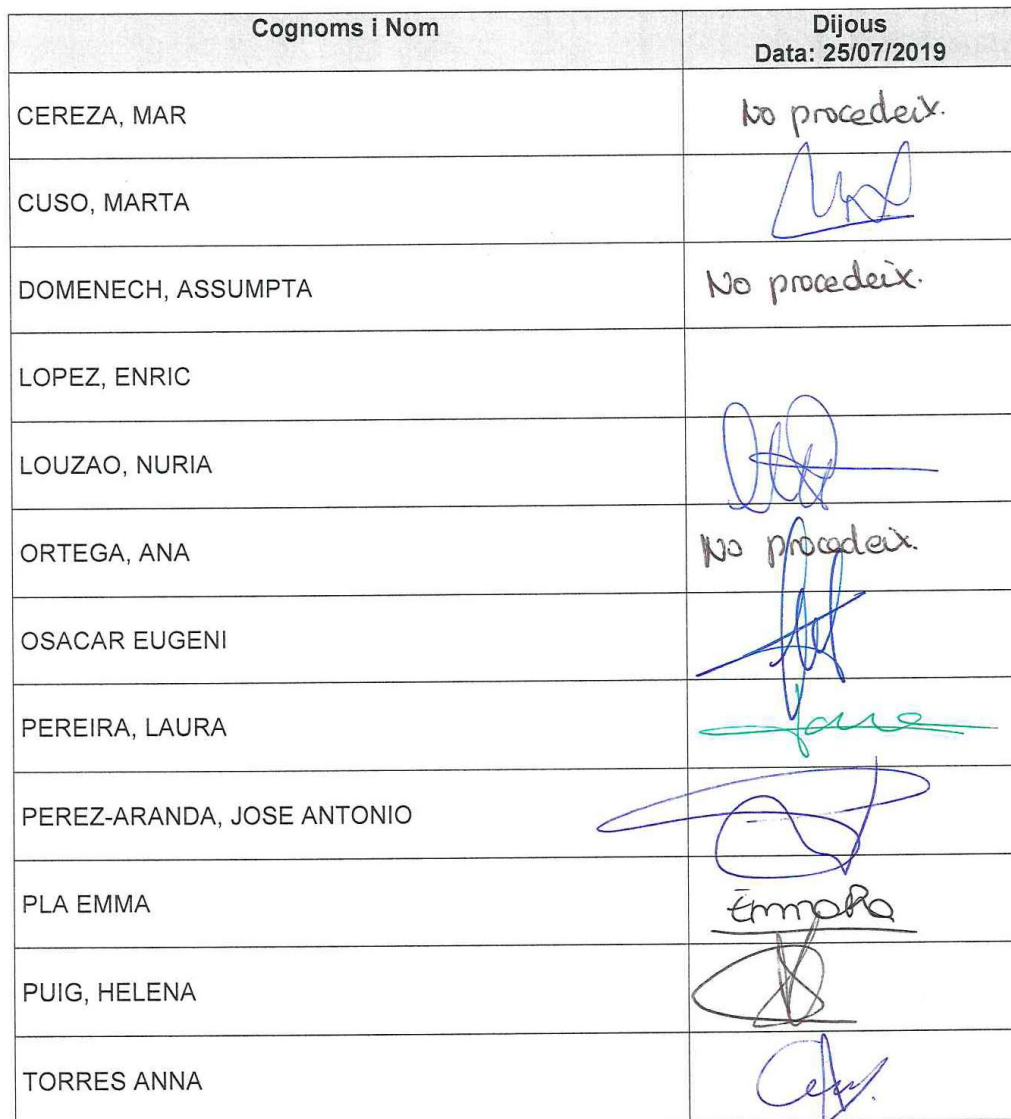 Cognoms i Nom
Dijous
Data: 25/07/2019
CEREZA, MAR
No procedeix.
CUSO, MARTA
DOMENECH, ASSUMPTA
No procedeix.
LOPEZ, ENRIC
LOUZAO, NURIA
ORTEGA, ANA
No procedeix.
OSACAR EUGENI
PEREIRA, LAURA
PEREZ-ARANDA, JOSE ANTONIO
PLA EMMA
PUIG, HELENA
TORRES ANNA